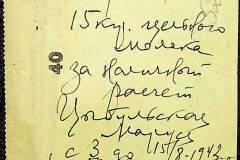 15 кгр. цельного
молока
40
за наличный
расчет
Цыбульская
Маруся
с 3 до 15/8-1942